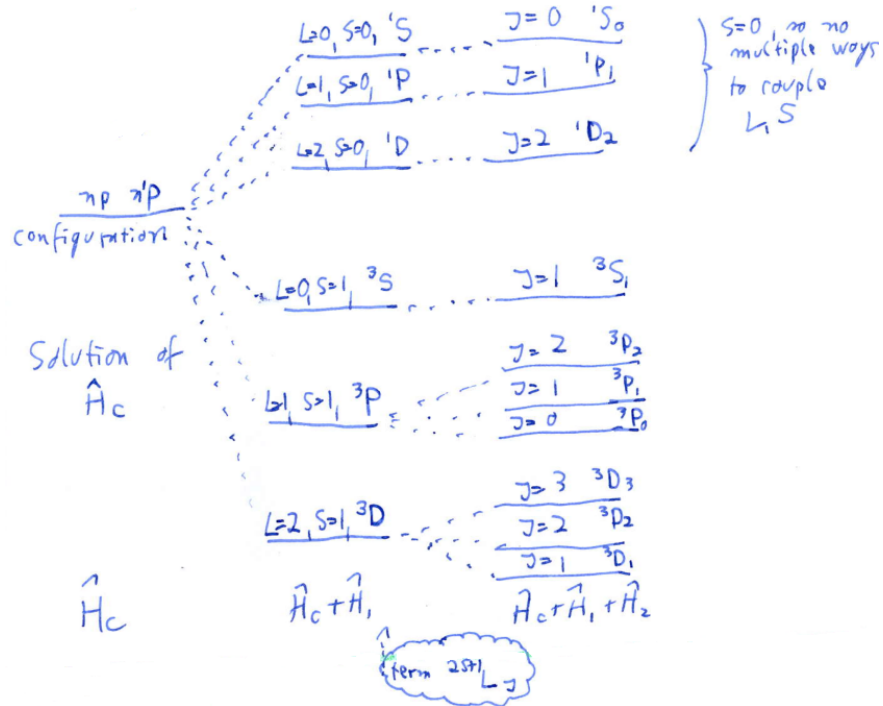 L=0, S=0, ¹S J=0 ¹S₀
L=1, S=0, ¹P J=1 ¹P₁
L=2, S=0, ¹D J=2 ¹D₂
S=0, so no
multiple ways
to couple
L, S
np n'p
configuration
L=0, S=1, ³S J=1 ³S₁
Solution of
Ĥc
L=1, S=1, ³P
J=2 ³P₂
J=1 ³P₁
J=0 ³P₀
L=2, S=1, ³D
J=3 ³D₃
J=2 ³D₂
J=1 ³D₁
Ĥc Ĥc+Ĥ₁ Ĥc+Ĥ₁+Ĥ₂
term ²ˢ⁺¹L_J